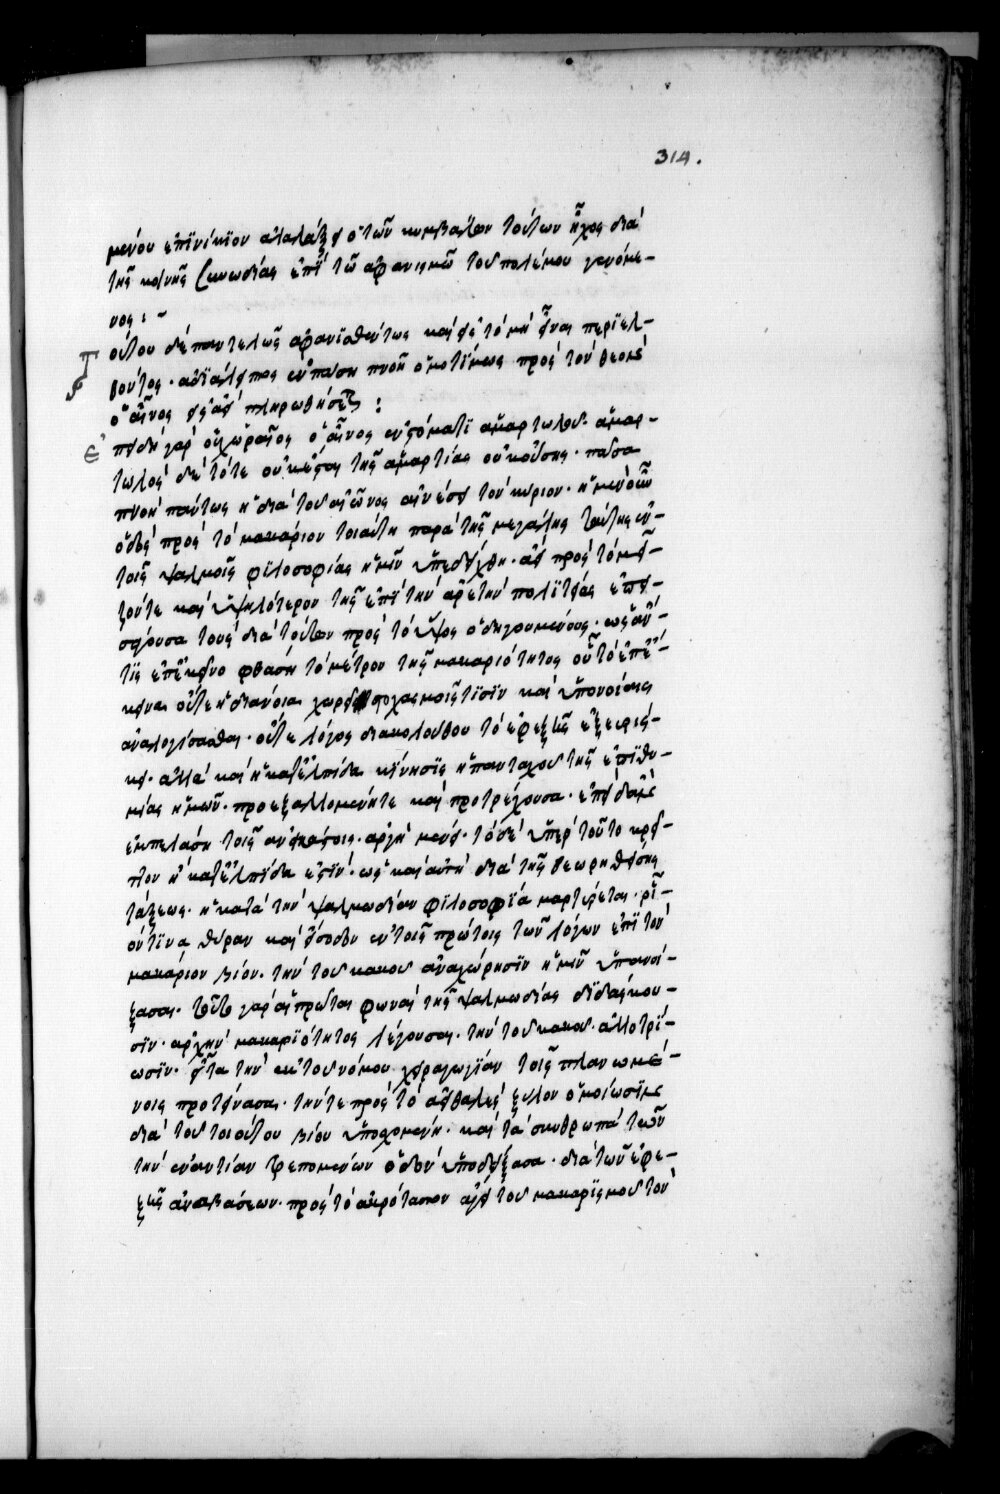 μένου ἐπινίκιον ἀλαλάξει ὁ τῶν κυμβάλων τούτων ἦχος διὰ
τῆς κοινῆς συνωδίας ἐπὶ τῶ ἀφανισμῶ τοῦ πολέμου γενόμε-
νος :~
Τούτου δὲ παντελῶς ἀφανισθέντως καὶ εἰς τὸ μὴ εἶναι περιελ-
θόντος· ἀδιαλείπτως ἐν πάσῃ πνοῇ ὁμοτίμως πρὸς τὸν θεὸν
ὁ αἶνος εἰς ἀεὶ πληρωθήσεται :
ἐπειδὴ γὰρ οὐχ ὡραῖος ὁ αἶνος ἐν στόματι ἁμαρτωλοῦ· ἁμαρ-
τωλὸς δὲ τότε οὐκ ἔσται τῆς ἁμαρτίας οὐκ οὔσης· πᾶσα
πνοὴ πάντως ἡ διὰ τοῦ αἰῶνος αἰνέσει τὸν κύριον· ἡ μὲν οὖν
ὁδὸς πρὸς τὸ μακάριον τοιαύτη παρὰ τῆς μεγάλης ταύτης ἐν
τοῖς ψαλμοῖς φιλοσοφίας ἡμῖν ὑπεδείχθη· ἀεὶ πρὸς τὸ μεῖ-
ζόν τε καὶ ὑψηλότερον τῆς ἐπὶ τὴν ἀρετὴν πολιτείας ἐπει-
σφέρουσα τοὺς διὰ τούτων πρὸς τὸ ὕψος ὁδηγουμένους· ὡς ἄν
τις ἐπ' ἐκεῖνο φθάσῃ τὸ μέτρον τῆς μακαριότητος οὗ τὸ ἐπέ-
κεινα οὔτε ἡ διάνοια χωρεῖ στοχασμοῖς τισὶν καὶ ὑπονοίαις
ἀναλογίσασθαι· οὔτε λόγος διακολούθου τὸ ἐφεξῆς ἐξευρίσ-
κει· ἀλλὰ καὶ ἡ κατ' ἐλπίδα κίνησις ἡ πανταχοῦ τῆς ἐπιθυ-
μίας ἡμῶν· προεξαλλομένη τε καὶ προτρέχουσα· ἐπειδὰν
ἐμπελάσῃ τοῖς ἀνεικάστοις· ἀργὴ μένει· τὸ δὲ ὑπὲρ τοῦτο κρεῖ-
ττον ἢ κατ' ἐλπίδα ἐστίν· ὡς καὶ αὐτὴ διὰ τῆς θεωρηθείσης
τάξεως· ἡ κατὰ τὴν ψαλμωδίαν φιλοσοφία μαρτύρεται· οἷ-
όν τινα θύραν καὶ εἴσοδον ἐν τοῖς πρώτοις τῶν λόγων ἐπὶ τὸν
μακάριον βίον· τὴν τοῦ κακοῦ ἀναχώρησιν ἡμῖν ὑπανοί-
ξασα· ταῦτα γὰρ αἱ πρῶται φωναὶ τῆς ψαλμωδίας διδάσκου-
σιν· ἀρχὴν μακαριότητος λέγουσαι· τὴν τοῦ κακοῦ ἀλλοτρί-
ωσιν· εἶτα τὴν ἐκ τοῦ νόμου χειραγωγίαν τοῖς πλανωμέ-
νοις προτείνασα· τήν τε πρὸς τὸ ἀειθαλὲς ξύλον ὁμοίωσιν
διὰ τοῦ τοιούτου βίου ὑποσχομένη· καὶ τὰ σκυθρωπὰ τῶν
τὴν ἐναντίαν τρεπομένων ὁδὸν ὑποδείξασα· διὰ τῶν ἐφε-
ξῆς ἀναβάσεων· πρὸς τὸ ἀκρότατον ἄγει τοῦ μακαρισμοῦ τὸν
314.